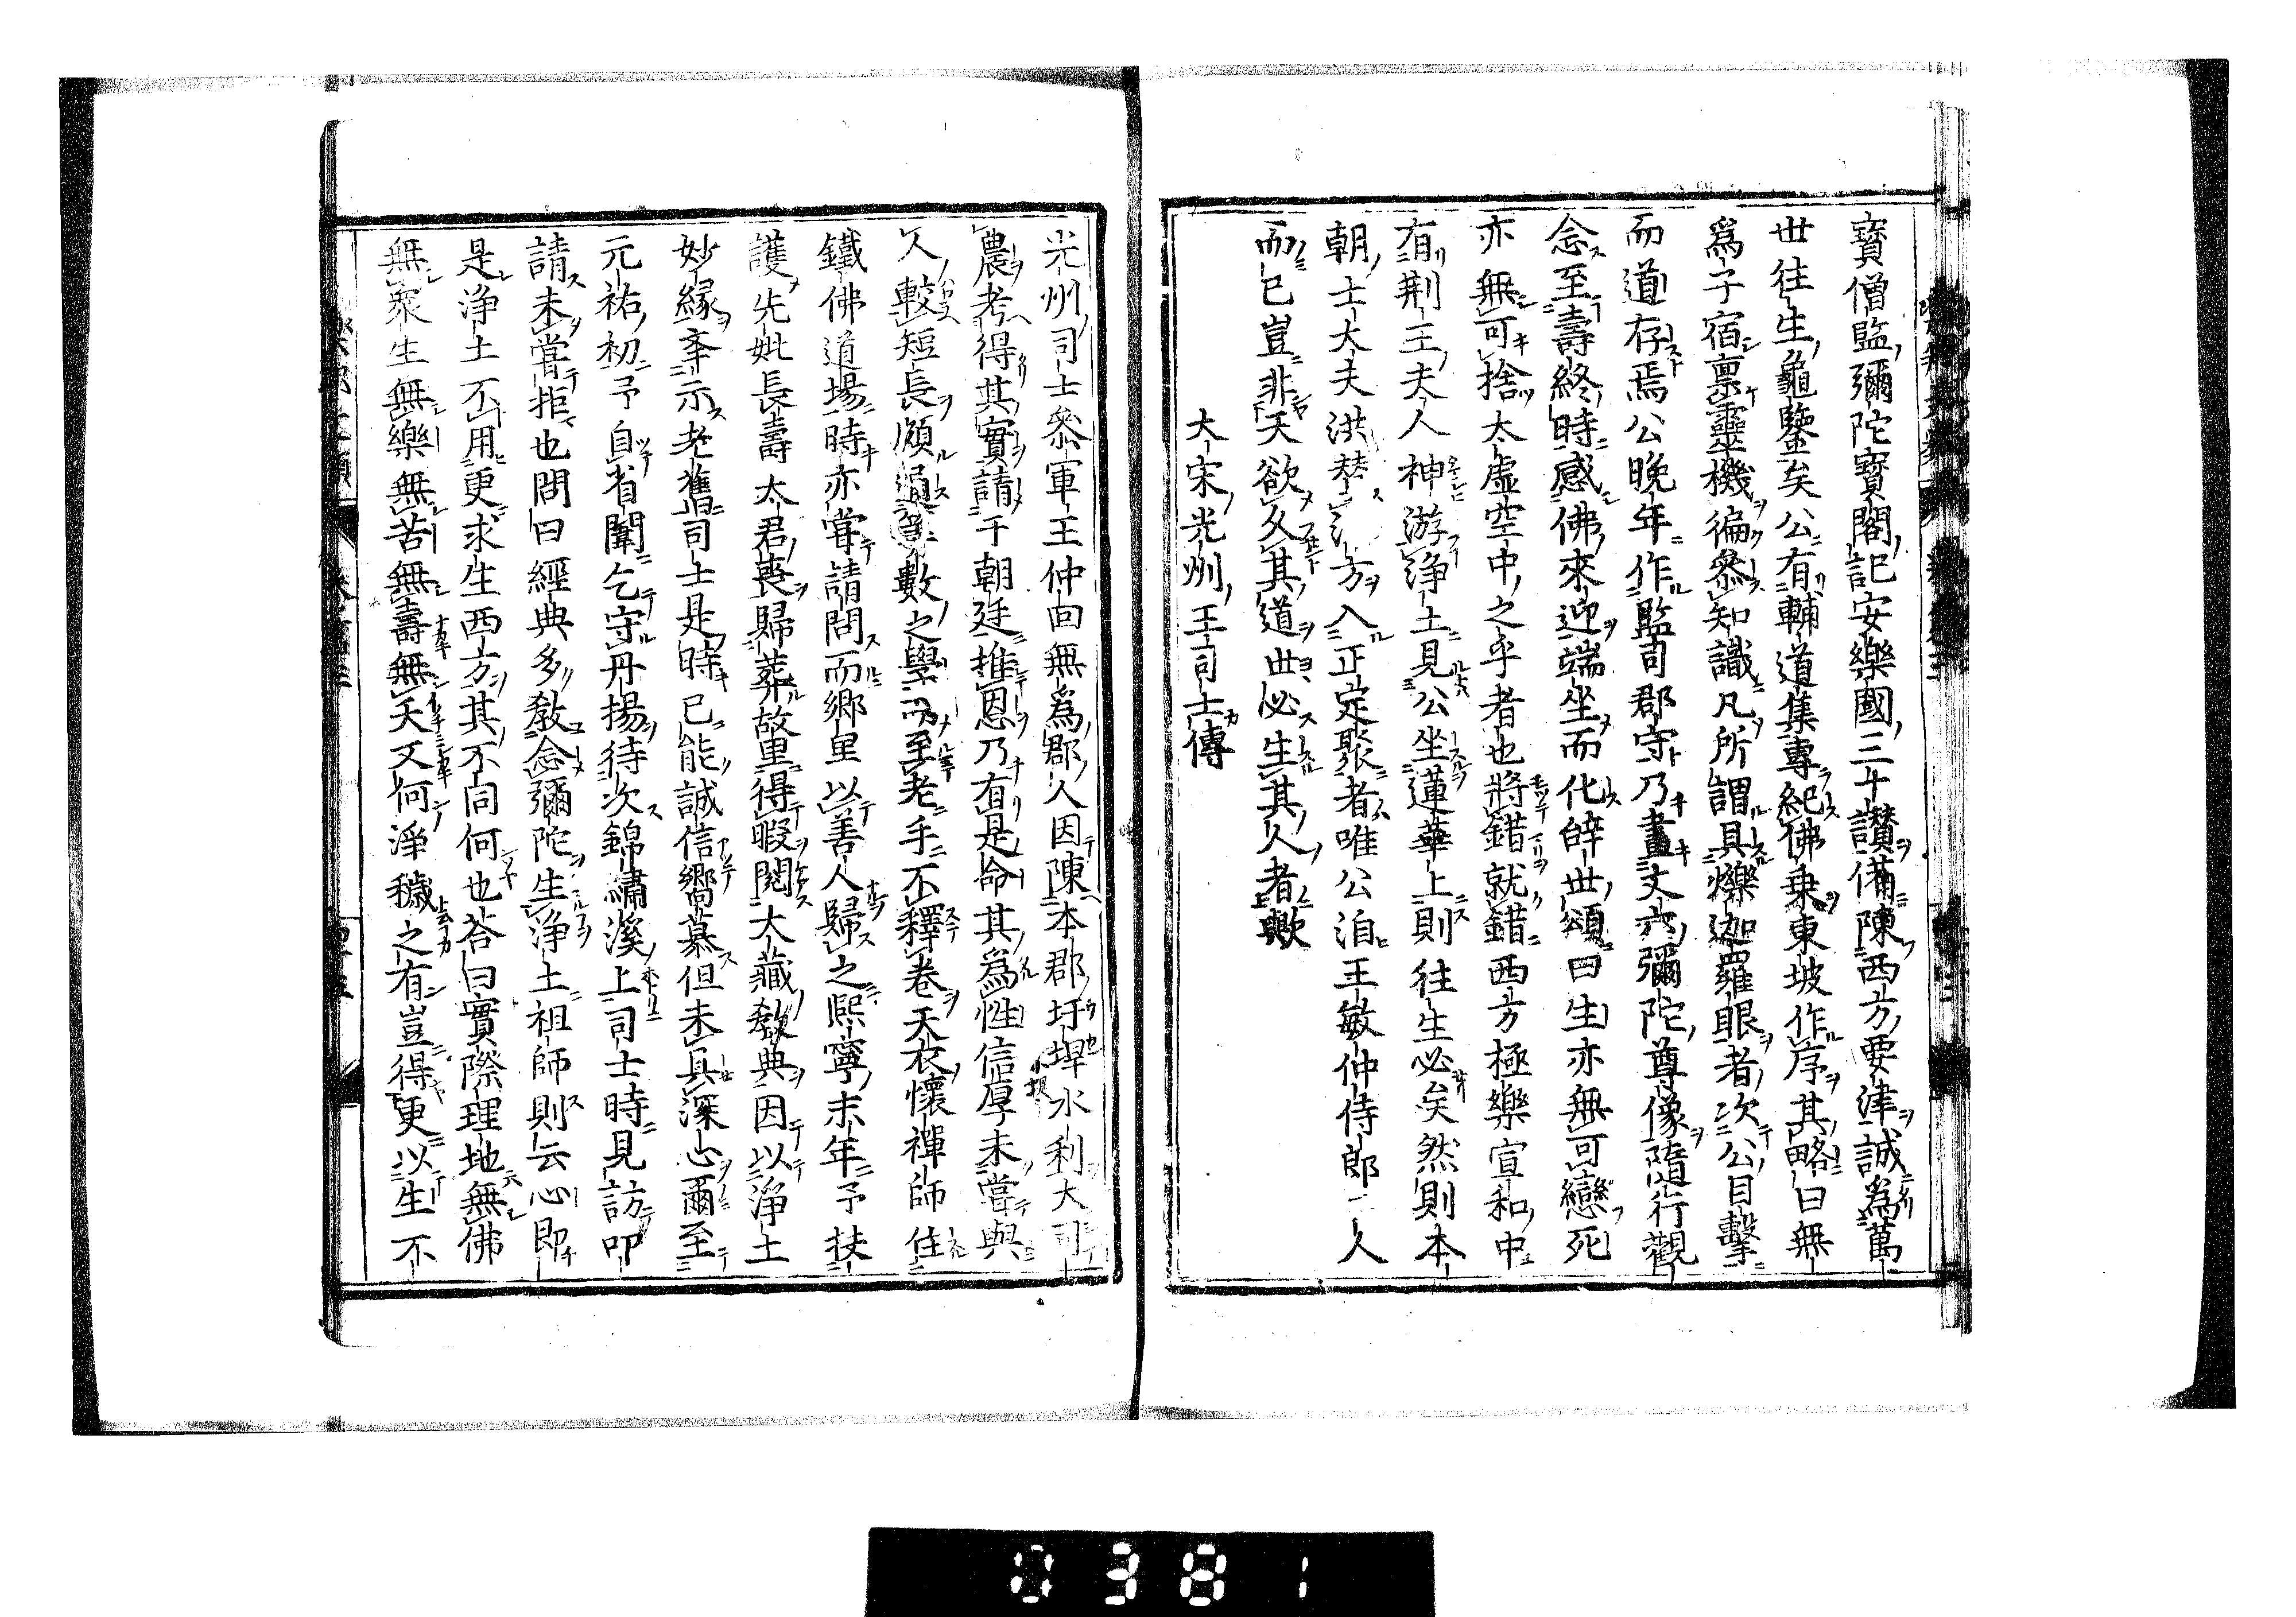 寶僧監彌陀寶閣記安樂國三十讚備陳西方要津誠爲萬
世往生龜鑒矣公有輔道集專紀佛乗東坡作序其略曰無
爲子宿禀靈機徧參知識凡所謂具爍迦羅眼者次公目擊
而道存焉公晚年作監司郡守乃畫丈六彌陀尊像隨行觀
念至壽終時感佛來迎端坐而化辝世頌曰生亦無可戀死
亦無可捨太虚空中之乎者也將錯就錯西方極樂宣和中
有荆王夫人神游淨土見公坐蓮華上則往生必矣然則本
朝士大夫洪替方入正定聚者唯公洎王敏仲侍郎二人
而已豈非天欲久其道世必生其人者歟
大宋光州王司士傳
光州司士參軍王仲回無爲郡人因陳本郡圩埤水利大司
農考得其實請于朝廷推恩乃有是命其爲性信厚未嘗與
人較短長頗通數之學而至老手不釋卷天衣懷禪師住
鐵佛道場時亦嘗請問而郷里以善人歸之熈寧末年予扶
護先妣長壽太君喪歸葬故里得暇閱大藏教典因以淨土
妙緣奉示老舊司士是時已能誠信嚮慕但未具深心爾至
元祐初予自省闈乞守丹揚待次錦繡溪上司士時見訪叩
請未嘗拒也問曰經典多教念彌陀生淨土祖師則云心即
是淨土不用更求生西方其不同何也荅曰實際理地無佛
無衆生無樂無苦無壽無夭又何淨穢之有豈得更以生不
0381